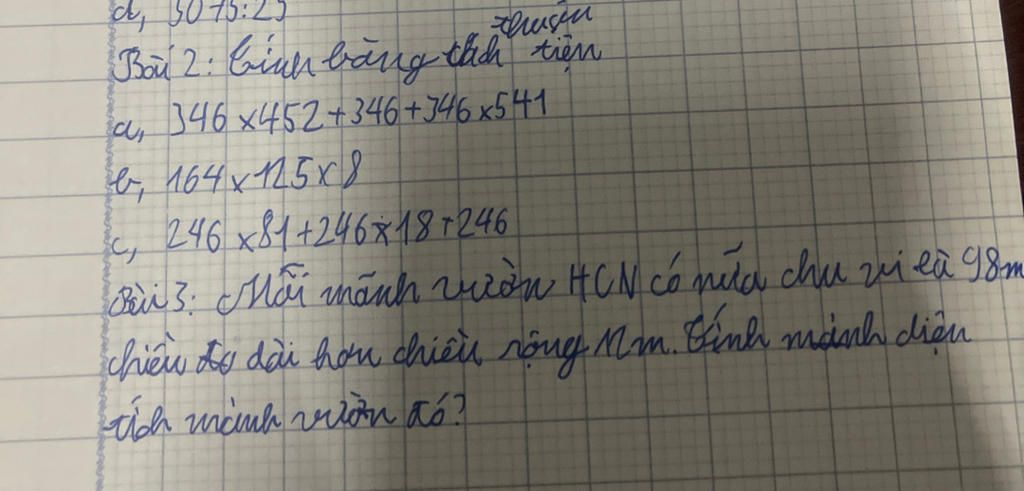 d, 5075:25
thuận
Bài 2: Tính bằng cách tiện
a, 346 x 452 + 346 + 346 x 541
b, 164 x 125 x 8
c, 246 x 81 + 246 x 18 + 246
Bài 3: Mỗi mảnh vườn HCN có nửa chu vi là 98m
chiều dài hơn chiều rộng 12m. Tính mảnh diện
tích mảnh vườn đó?